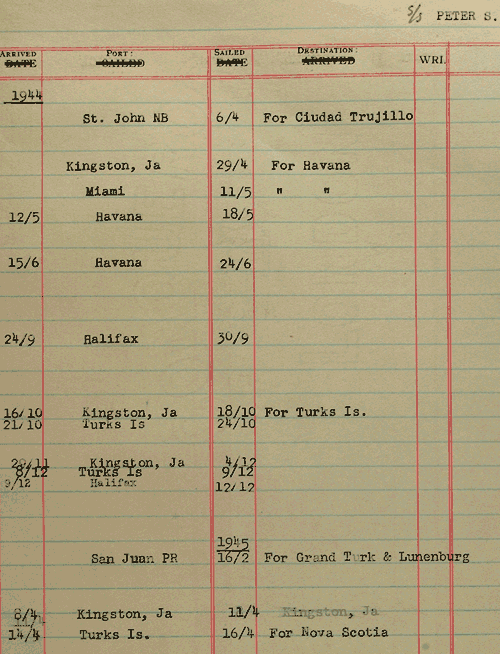 S/S PETER S.
ARRIVED PORT: SAILED DESTINATION:
DATE SAILED DATE ARRIVED WRI.
1944
St. John NB 6/4 For Ciudad Trujillo
Kingston, Ja 29/4 For Havana
Miami 11/5 " "
12/5 Havana 18/5
15/6 Havana 24/6
24/9 Halifax 30/9
16/10 Kingston, Ja 18/10 For Turks Is.
21/10 Turks Is 24/10
Kingston, Ja 4/12
8/12 Turks Is 9/12
9/12 Halifax 12/12
1945
San Juan PR 16/2 For Grand Turk & Lunenburg
8/4 Kingston, Ja 11/4 Kingston, Ja
14/4 Turks Is. 16/4 For Nova Scotia